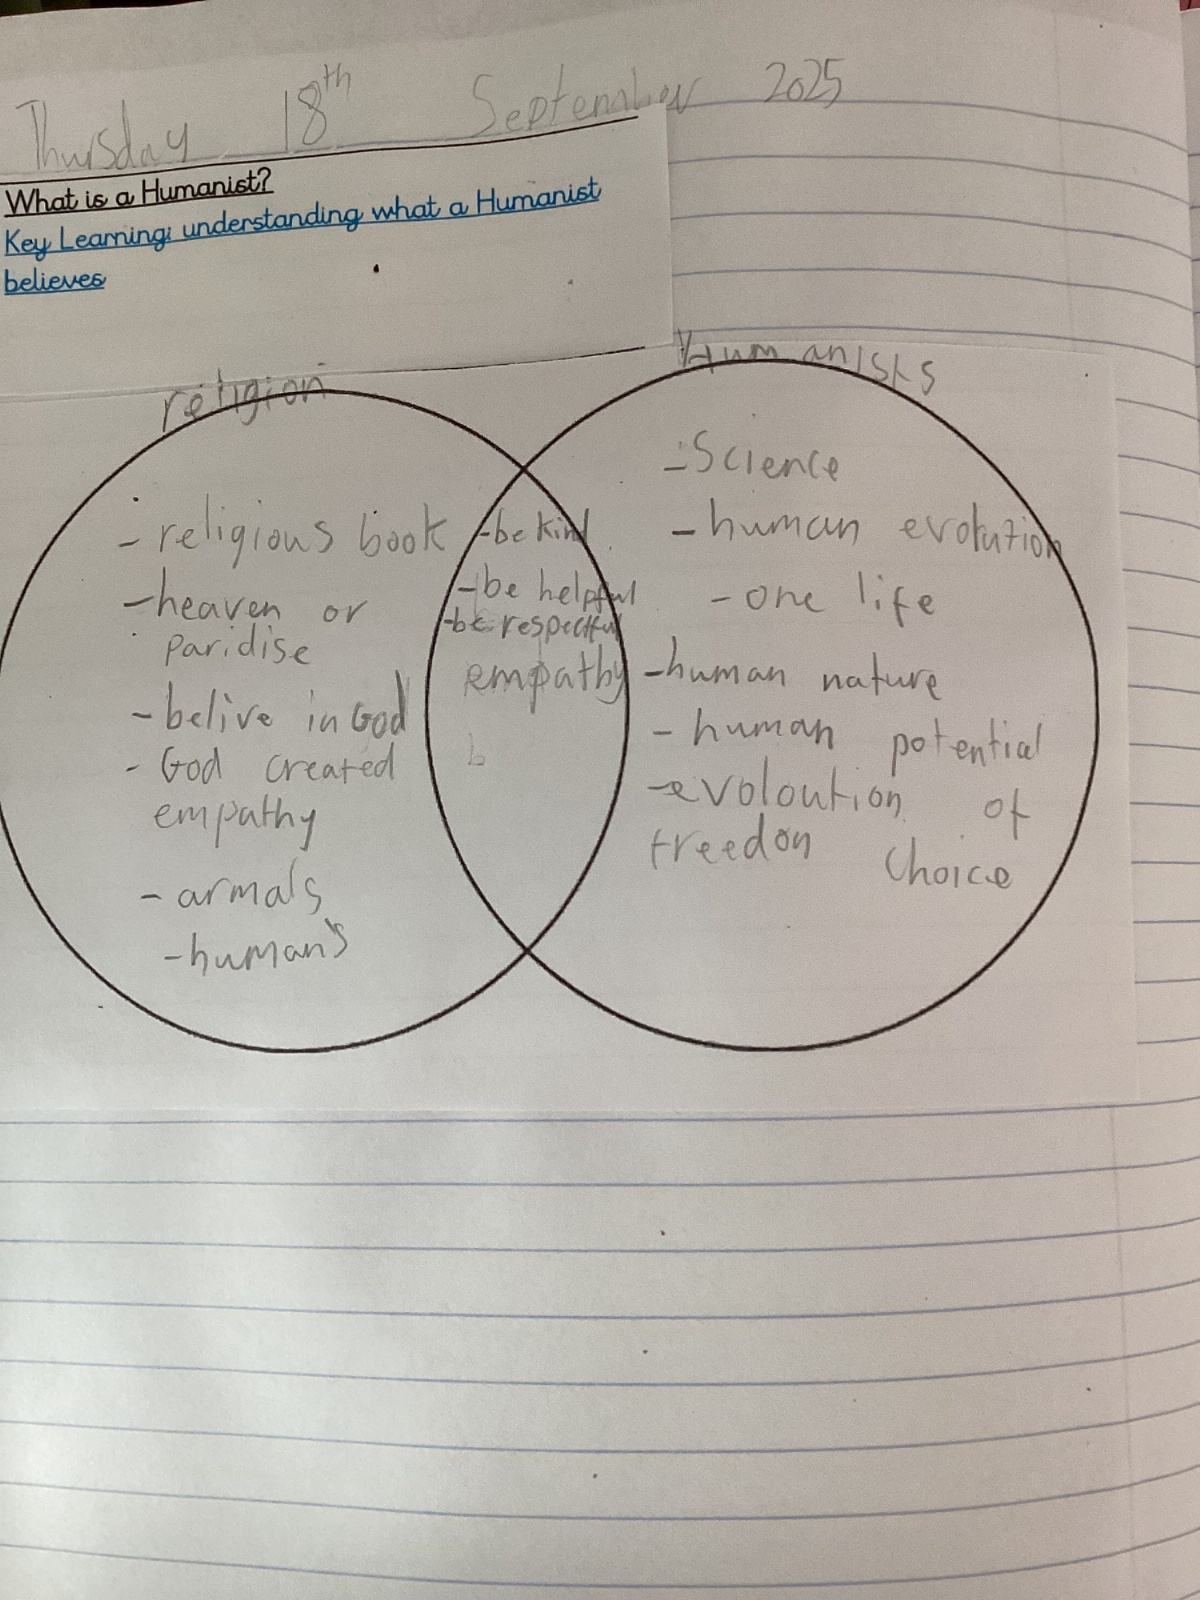 Thursday 18th September 2025
What is a Humanist?
Key Learning: understanding what a Humanist
believes
religion
- religious book
- heaven or
paridise
- belive in God
- God created
empathy
- armals
- human's
- be kind
- be helpful
- be respectful
empathy
b
Humanists
- Science
- human evolution
- one life
- human nature
- human potential
- evoloution of
freedon choice